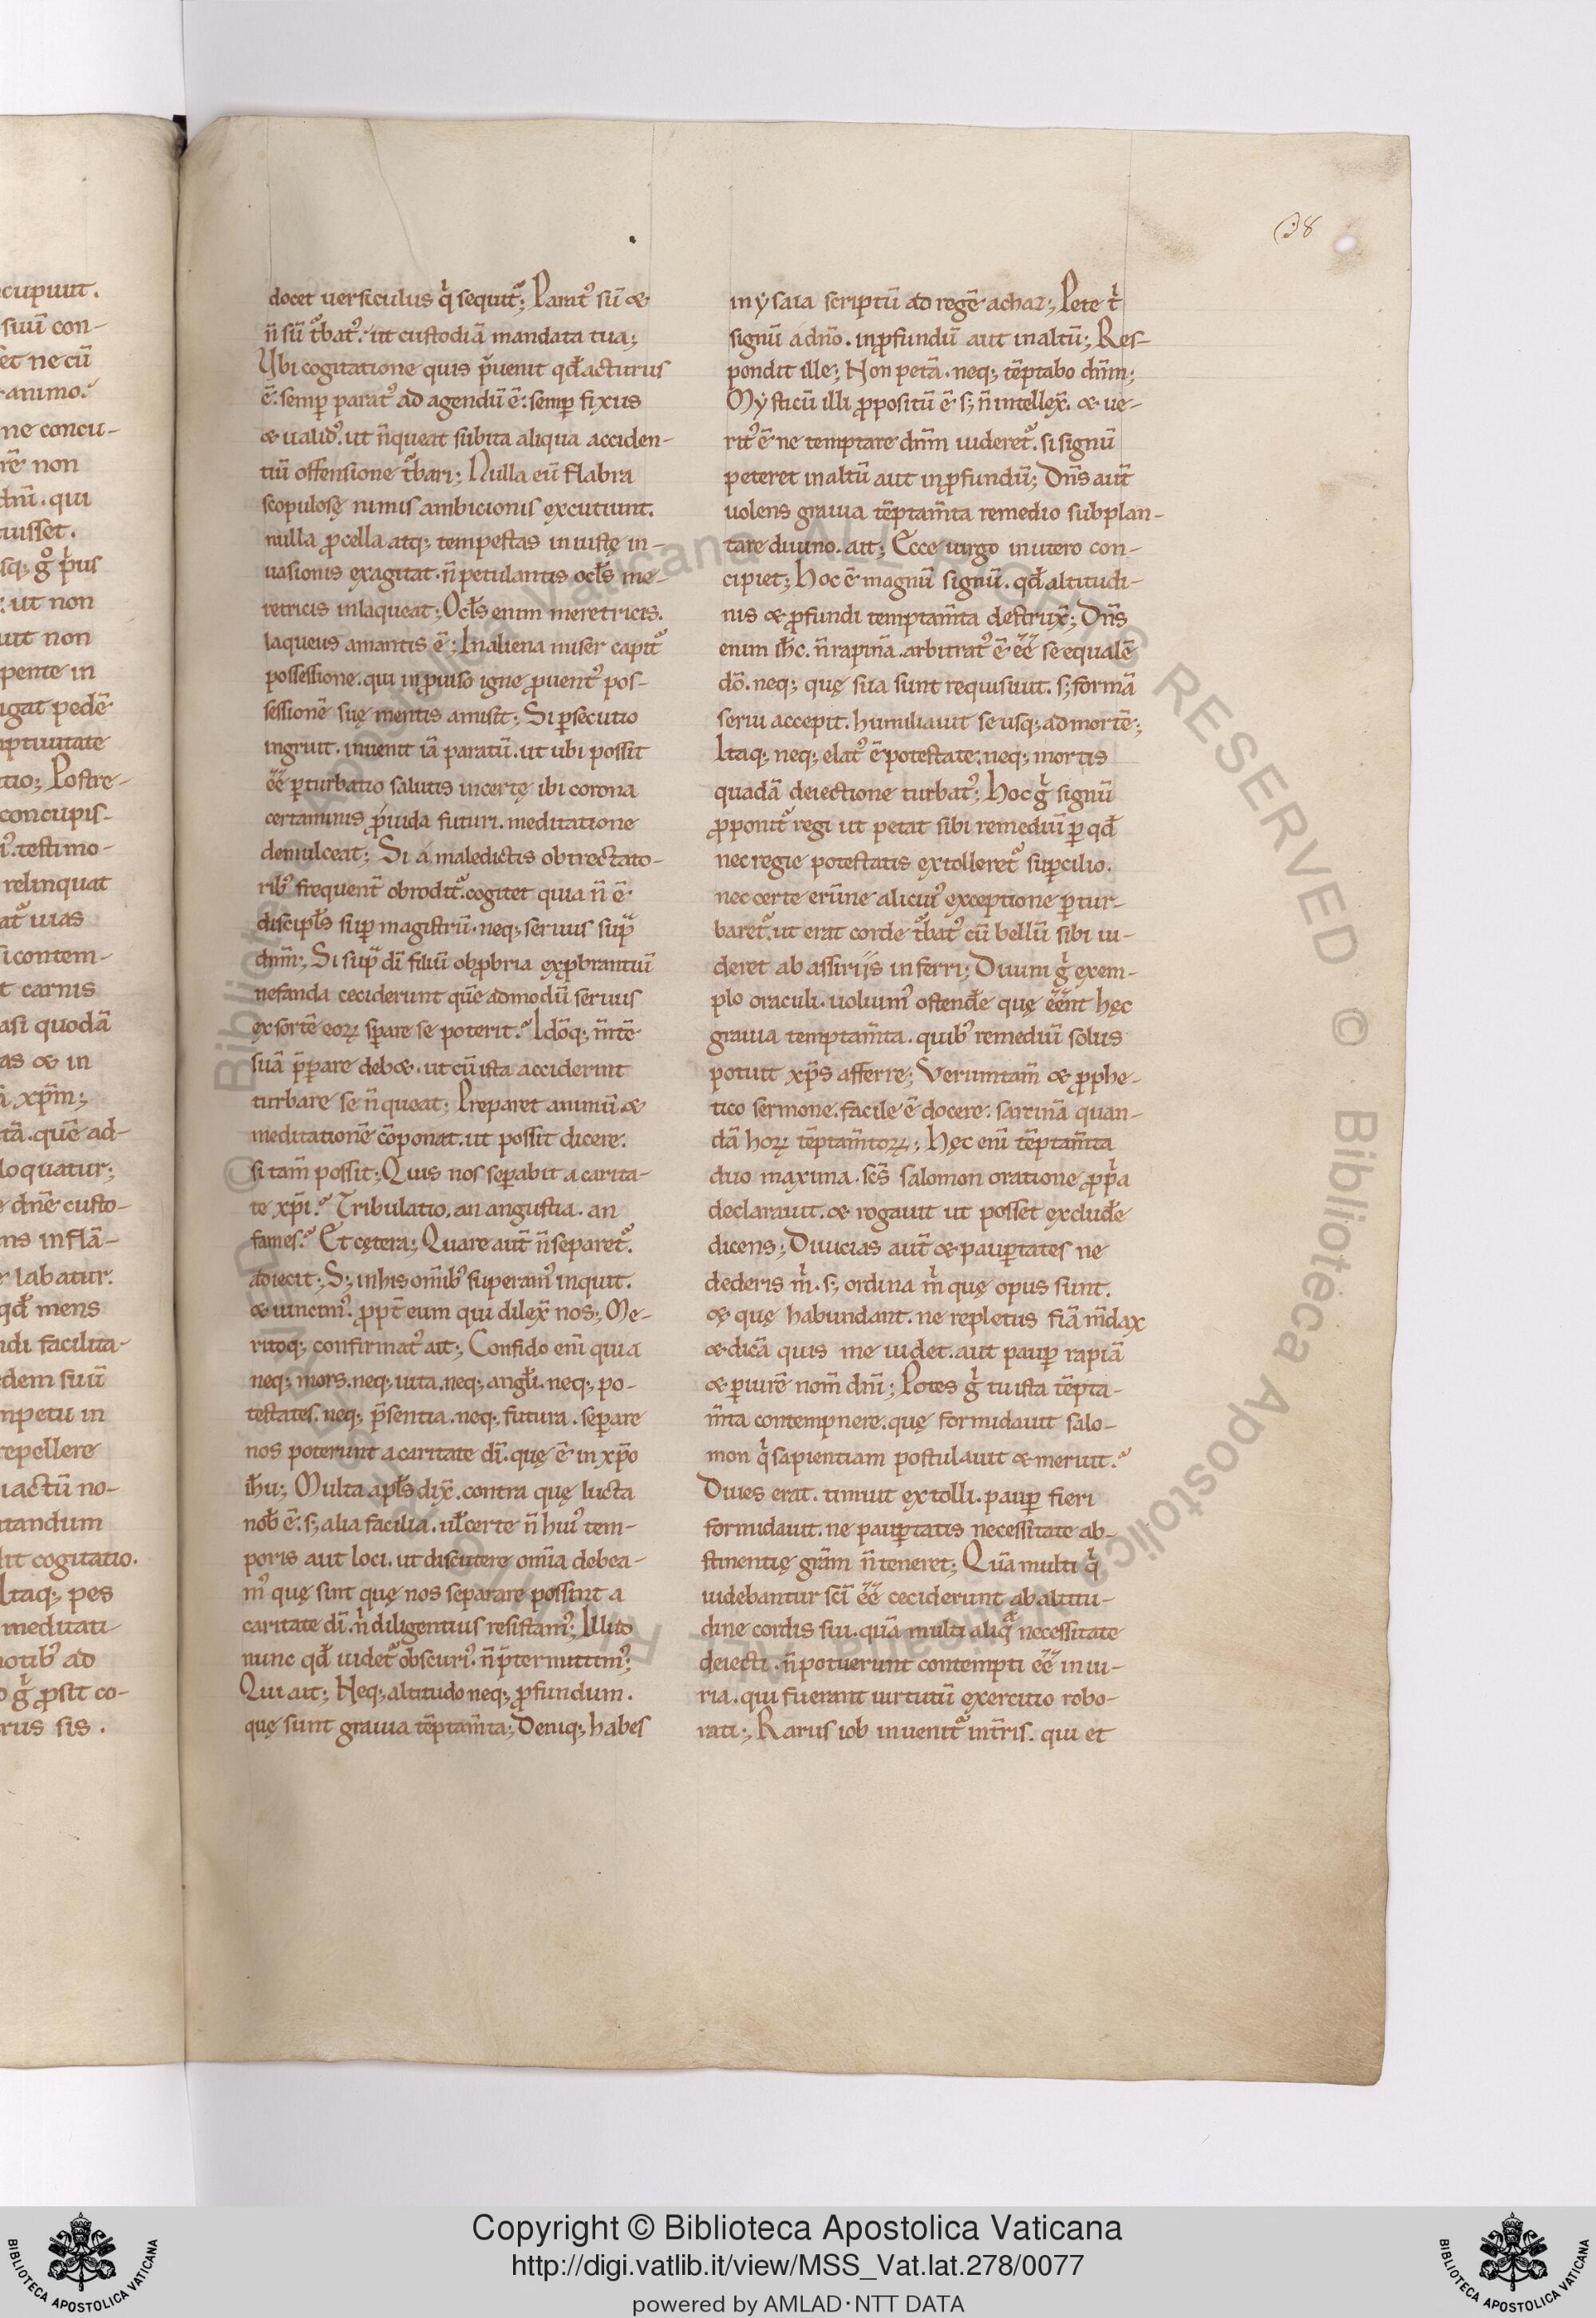 cupiuit.
siuū con-
et ne cū
animo.
me concu-
rē non
dnī. qui
uisset.
sq; g̊ p̄us
ut non
uit non
pente in
igat pedē
aptiuitate
tio; Postre-
concupis-
testimo-
relinquat
at᷑ uias
si contem-
t carnis
asi quodā
as & in
xp̄m;
tā. quē ad-
loquatur;
dn̄e custo-
ns inflā-
labatur.
qđ mens
ndi facilita-
dem suū
mpetu in
repellere
iactū no-
tandum
lit cogitatio.
Itaq; pes
meditati
motibꝰ ad
g̊ ꝓsit co-
rus sis.
docet uersiculus q̇ sequit᷑; Paratꝰ sū &
n̄ sū t᷑batꝰ. ut custodiā mandata tua;
Vbi cogitatione quis p̄uenit qđ acturus
ē. semꝑ paratꝰ ad agendū ē. semꝑ fixus
& ualidꝰ. ut n̄ queat subita aliqua acciden-
tiū offensione t᷑bari; Nulla eū flabra
scopulosę nimis ambicionis excutiunt.
nulla ꝓcella atq; tempestas iniustę in-
uasionis exagitat. n̄ petulantis ocl̄s me-
retricis inlaqueat; Ocl̄s enim meretricis.
laqueus amantis ē; In aliena miser capit᷑
possessione. qui inꝓuiso igne ꝓuentꝰ pos-
sessionē suę mentis amisit; Si ꝑsecutio
ingruit. inuenit iā paratū. ut ubi possit
ēē ꝑturbatio salutis incertę ibi corona
certaminis ꝓuida futuri. meditatione
demulceat; Si a maledictis obtrectato-
ribꝰ frequent̄ obrodit᷑. cogitet quia n̄ ē
discipl̄s suꝑ magistrū. neq; seruus sup̄
dnm̄; Si sup̄ dī filiū obꝓbria exꝓbrantiū
nefanda ceciderunt quē admodū seruus
exsortē eoꝝ sꝑare se poterit. Idōq; m̄tē
suā p̄parare deb&. ut cū ista acciderint
turbare se n̄ queat; Preparet animū &
meditationē cōponat. ut possit dicere.
si tam̄ possit; Quis nos seꝑabit a carita-
te xp̄i. Tribulatio. an angustia. an
fames. Et cętera; Quare aut̄ n̄ separet᷑.
adiecit; S; in his om̄ibꝰ superamꝰ inquit.
& uincimꝰ. ꝓpt̄ eum qui dilex̄ nos; Me-
ritoq; confirmatꝰ ait; Confido enī quia
neq; mors. neq; uita. neq; angl̄i. neq; po-
testates. neq; p̄sentia. neq; futura. seꝑare
nos poterunt a caritate dī. quę ē in xp̄o
ih̄u; Multa apl̄s dix̄. contra quę lucta
nob̄ ē. s; alia facilia. ul̄ certe n̄ huiꝰ tem-
poris aut loci. ut discutere om̄ia debea-
mꝰ quę sint quę nos separare possint a
caritate dī. n̊ diligentius resistamꝰ; Illud
nunc qđ uidet᷑ obscuriꝰ. n̄ p̄termittimꝰ;
Qui ait; Neq; altitudo neq; ꝓfundum.
quę sunt grauia tēptam̄ta; Deniq; habes
38
in ysaia scriptū ad regē achaz; Pete t̊
signū a dn̄o. in ꝓfundū aut in altū; Res-
pondit ille; Non petā. neq; tēptabo dnm̄;
Mysticū illi ꝓpositū ē s; n̄ intellex̄. & ue-
ritꝰ ē ne temptare dnm̄ uideret᷑. si signū
peteret in altū aut in ꝓfundū; Dn̄s aut̄
uolens grauia tēptam̄ta remedio subplan-
tare diuino. ait; Ecce uirgo in utero con-
cipiet; Hoc ē magnū signū. qđ altitudi-
nis & ꝓfundi temptam̄ta destrux̄; Dn̄s
enim ih̄c. n̄ rapinā arbitratꝰ ē ēē se equalē
dō. neq; quę sua sunt requisiuit. s; formā
serui accepit. humiliauit se usq; ad mortē;
Itaq; neq; elatꝰ ē potestate. neq; mortis
quadā deiectione turbatꝰ; Hoc g̊ signū
ꝓponit᷑ regi ut petat sibi remediū ꝑ qđ
nec regie potestatis extolleret᷑ suꝑcilio.
nec certe erūne alicuiꝰ exceptione ꝑtur-
baret᷑. ut erat corde t᷑batꝰ cū bellū sibi ui-
deret ab assiriis inferri; Diuini g̊ exem-
plo oraculi. uoluimꝰ ostendēe quę ēēnt hęc
grauia temptam̄ta. quibꝰ remediū solus
potuit xp̄s afferre; Veruntam̄ & ꝓphe-
tico sermone. facile ē docere. sartinā quan-
dā hoꝝ tēptam̄toꝝ; Hęc enī tēptam̄ta
duo maxima. sc̄s salomon oratione ꝓp̊a
declarauit. & rogauit ut posset excludēe
dicens; Diuicias aut̄ & pauꝑtates ne
dederis m̊. s; ordina m̊ quę opus sunt.
& quę habundant. ne repletus fiā m̄dax
& dicā quis me uidet. aut pauꝑ rapiā
& ꝑiurē nom̄ dnī; Potes g̊ tu ista tēpta-
m̄ta contempnere. quę formidauit salo-
mon q̊ sapientiam postulauit & meruit.
Diues erat. timuit extolli. pauꝑ fieri
formidauit. ne pauꝑtatis necessitate ab-
stinentię grām n̄ teneret; Quā multi q̊
uidebantur scī ēē ceciderunt ab altitu-
dine cordis sui. quā multi aliqᵃ necessitate
deiecti. n̄ potuerunt contempti ēē iniu-
ria. qui fuerant uirtutū exercitio robo-
rati; Rarus iob inuenit᷑ in t̄ris. qui et
Copyright © Biblioteca Apostolica Vaticana
http://digi.vatlib.it/view/MSS_Vat.lat.278/0077
powered by AMLAD·NTT DATA
BIBLIOTECA APOSTOLICA VATICANA
BIBLIOTECA APOSTOLICA VATICANA